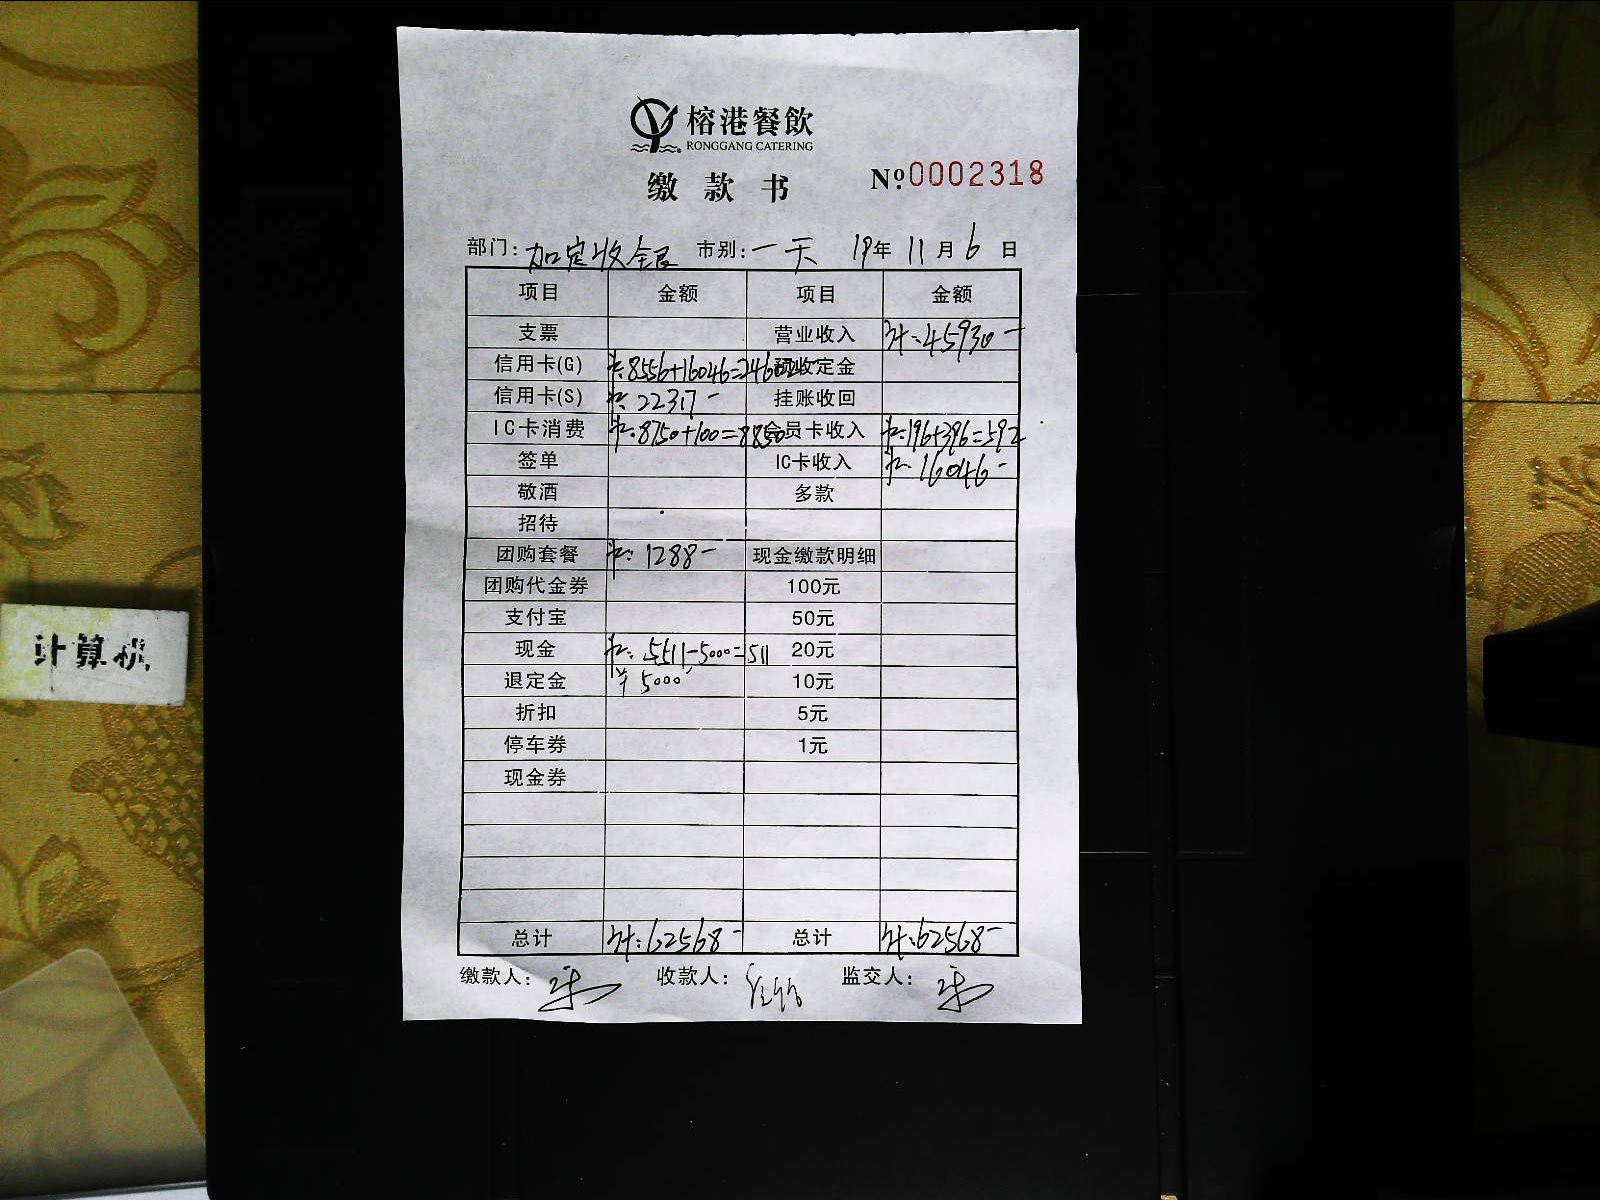 榕港餐飲
RONGGANG CATERING
缴款书 №0002318
部门: 加定收银 市别: 一天 19年 11月 6日
项目 金额 项目 金额
支票 营业收入 计:45930-
信用卡(G) 卡:8556+16046=24602 预收定金
信用卡(S) 卡:22317- 挂账收回
IC卡消费 卡:8750+100=8850 会员卡收入 卡:196+396=592
签单 IC卡收入 卡:16046-
敬酒 多款
招待
团购套餐 卡:1288- 现金缴款明细
团购代金券 100元
支付宝 50元
现金 卡:5511-5000=511 20元
退定金 ¥5000 10元
折扣 5元
停车券 1元
现金券
总计 计:62568- 总计 计:62568-
缴款人: 收款人: 监交人:
计算机